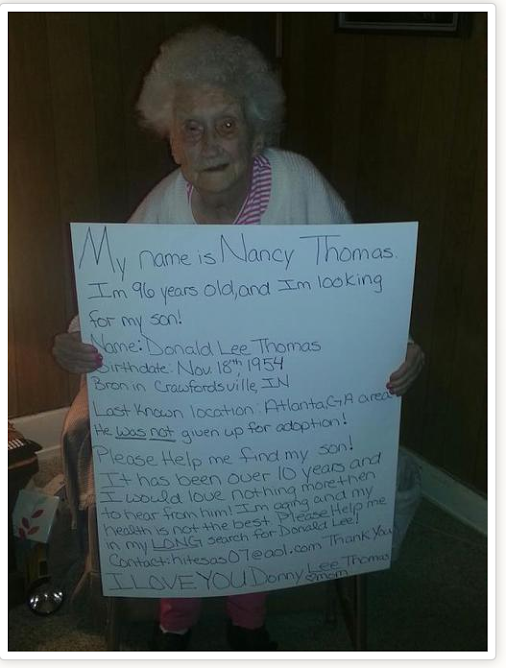 My name is Nancy Thomas.
Im 96 years old, and Im looking
for my son!
Name: Donald Lee Thomas
Birthdate: Nov 18th 1954
Bron in Crawfordsville, IN
Last Known location: Atlanta, GA area
He was not given up for adoption!
Please Help me find my son!
It has been over 10 years and
I would love nothing more then
to hear from him! Im aging and my
health is not the best. Please Help me
in my LONG search for Donald Lee!
Contact: hitesas07@aol.com Thank You
I LOVE YOU Donny Lee Thomas
mom